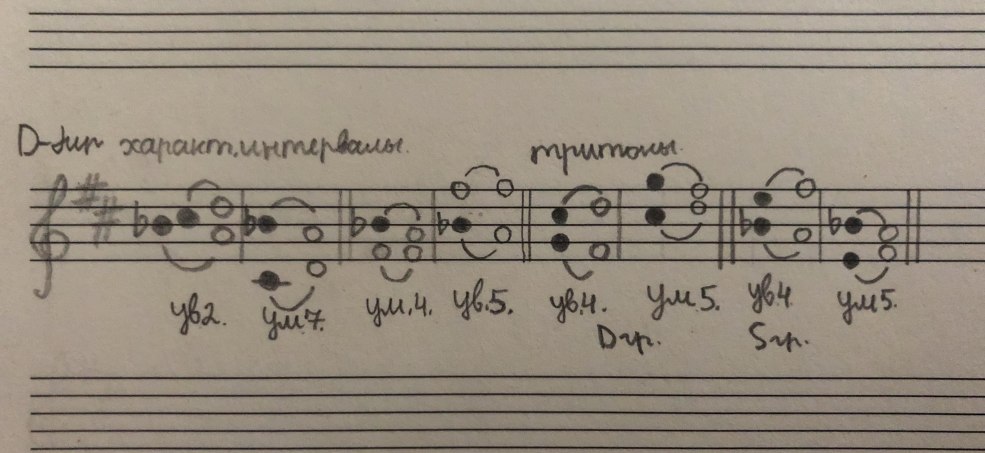 D-dur характ.интервалы. тритоны.
ув2. ум7. ум.4. ув.5. ув.4. ум5. ув4 ум5.
Dгр. Sгр.